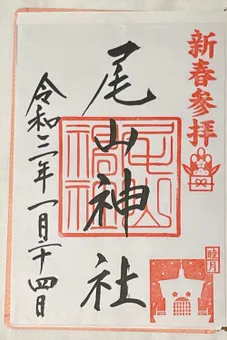 新春参拝
尾山神社
令和三年一月二十四日
睦月